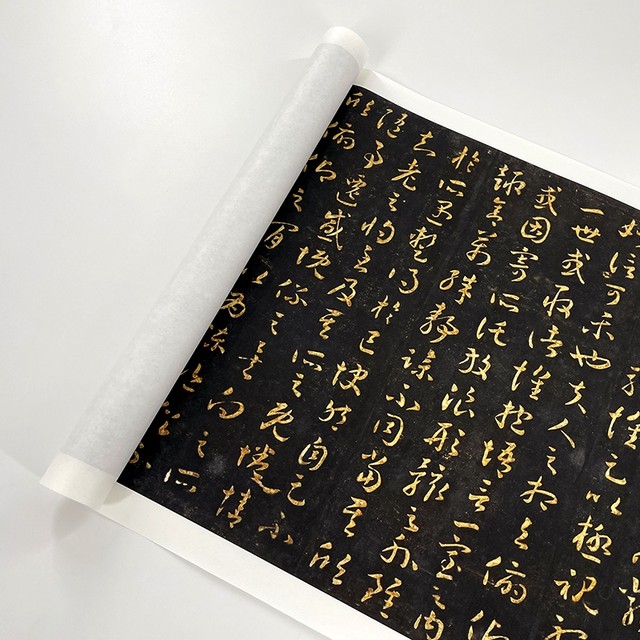 懷足以極視
信可樂也夫人之相與俯仰
一世或取諸懷抱悟言一室之內
或因寄所託放浪形骸之外雖
趣舍萬殊靜躁不同當其欣
於所遇暫得於己快然自足不
知老之將至及其所之既倦情
隨事遷感慨係之矣向之所
欣俛仰之間以為陳迹